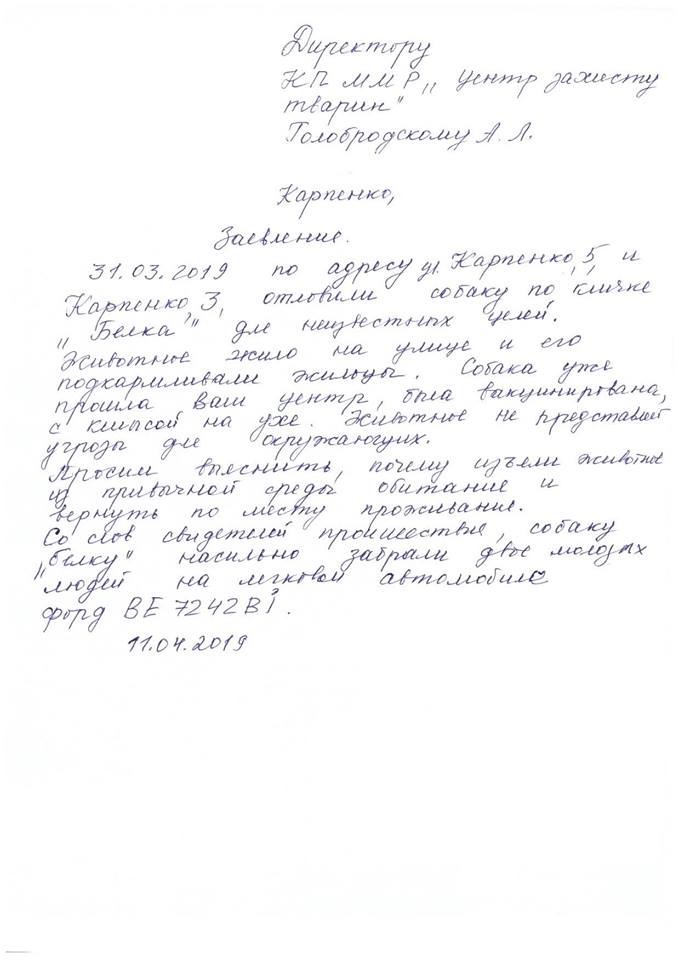 Директору
КП ММР „Центр захисту
тварин"
Голобродскому А.Л.
Карпенко,
Заевление.
31.03.2019 по адресу ул. Карпенко, 5 и
Карпенко, 3, отловили собаку по кличке
„Белка" дле неизвестных целей.
Животное жило на улице и его
подкармливали жильцы. Собака уже
прошла Ваш центр, была вакцинирована,
с клипсой на ухе. Животное не представляй
угрозы дле окружающих.
Просим выеснить, почему изъели животное
из привычной среды обитание и
вернуть по месту проживание.
Со слов свидетелей происшествие, собаку
„Белку" насильно забрали двое молодых
людей на легковой автомобиле
форд ВЕ 7242 ВІ.
11.04.2019